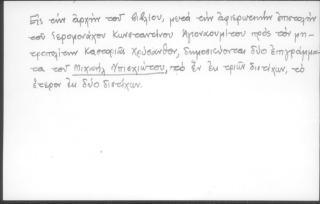 Εἰς τὴν ἀρχὴν τοῦ βιβλίου, μετὰ τὴν ἀφιερωτικὴν ἐπιστολὴν
τοῦ Ἱερομονάχου Κωνσταντίνου Ἁγιοναουμίτου πρὸς τὸν μη-
τροπολίτην Καστορίας Χρύσανθον, δημοσιεύονται δύο ἐπιγράμμα-
τα τοῦ Μιχαὴλ Μπισχιώτου, τὸ ἓν ἐκ τριῶν διστίχων, τὸ
ἕτερον ἐκ δύο διστίχων.